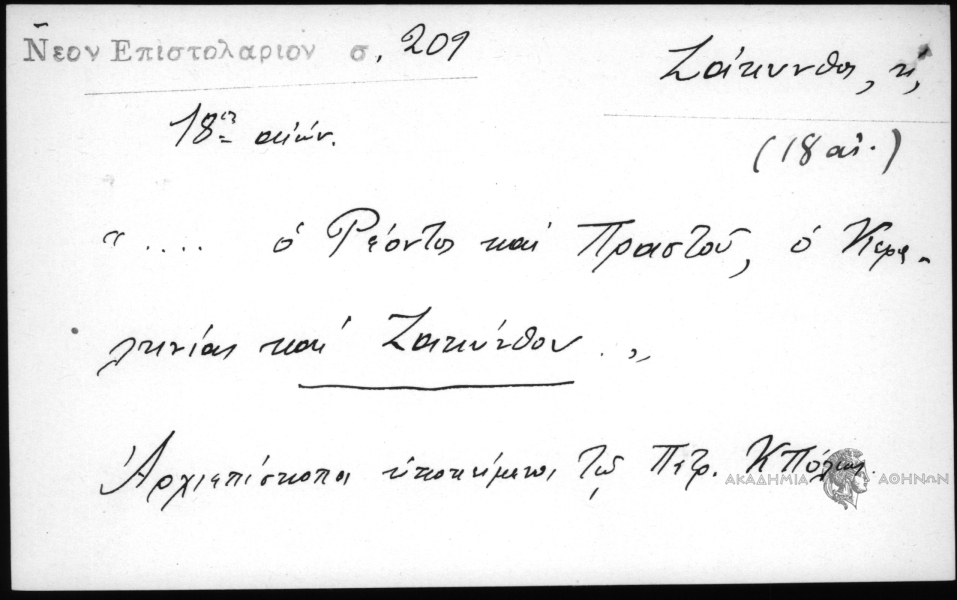 Νεον Επιστολαριον σ. 209
Ζάκυνθος, η,
18ος αιών.
(18 αι.)
“ .... ὁ Ρέοντος καὶ Πραστοῦ, ὁ Κεφα-
ληνίας καὶ Ζακύνθου . „
Ἀρχιεπίσκοποι ὑποκείμενοι τῷ Πατρ. ΚΠόλεως.
ΑΚΑΔΗΜΙΑ ΑΘΗΝΩΝ